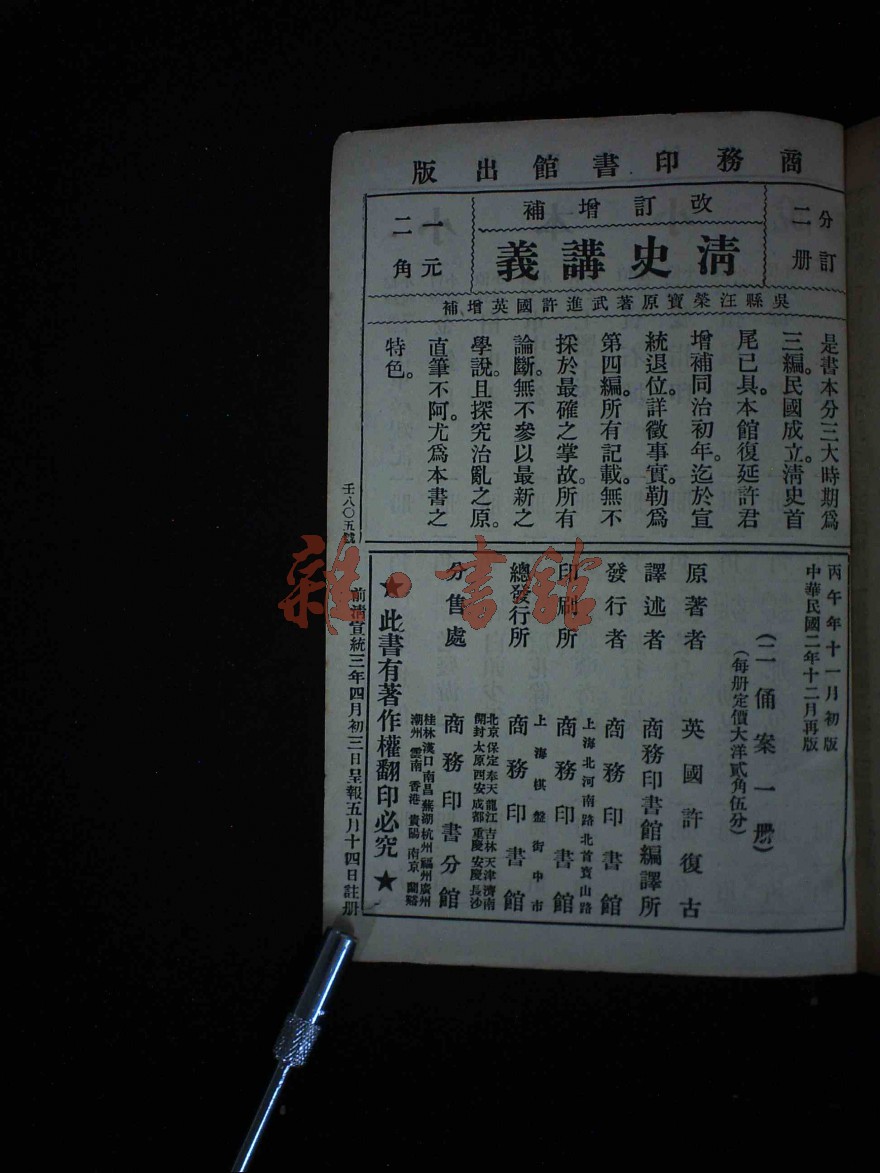 商務印書館出版
分訂二册
改訂增補
清史講義
一元二角
吳縣汪榮寶原著武進許國英增補
是書本分三大時期爲
三編。民國成立。清史首
尾已具。本館復延許君
增補同治初年。迄於宣
統退位。詳徵事實。勒爲
第四編。所有記載。無不
採於最確之掌故。所有
論斷。無不參以最新之
學說。且探究治亂之原。
直筆不阿。尤爲本書之
特色。
壬八〇五號
丙午年十一月初版
中華民國二年十二月再版
(二俑案一册)
(每册定價大洋貳角伍分)
原著者 英國許復古
譯述者 商務印書館編譯所
發行者 商務印書館
上海北河南路北首寶山路
印刷所 商務印書館
上海棋盤街中市
總發行所 商務印書館
北京保定奉天龍江吉林天津濟南
開封太原西安成都重慶安慶長沙
分售處 商務印書分館
桂林漢口南昌蕪湖杭州福州廣州
潮州雲南香港貴陽南京蘭谿
★此書有著作權翻印必究★
前清宣統三年四月初三日呈報五月十四日註册
雜·書館